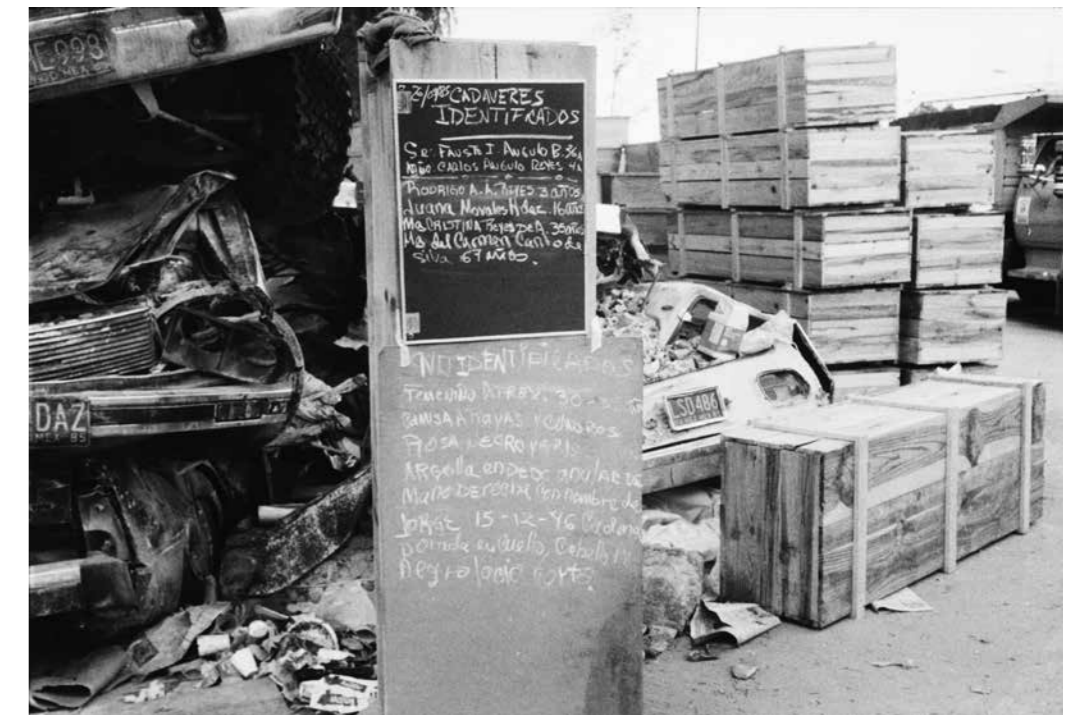 CADAVERES
IDENTIFICADOS
Sr. FAUSTO I. ANGULO B. 36
NIÑO. CARLOS ANGULO REYES 4
RODRIGO A. A. REYES 3 AÑOS
Juana Morales 16 años
Ma CRISTINA Reyes De A. 35 años
Ma del Carmen Canto de
Silva 67 AÑOS.
NO IDENTIFICADOS
FEMENINO 30
CAMISA A RAYAS
ROSA NEGRO y GRIS
ARGOLLA en DEDO anular DE
Mano DERECHA con nombre de
JORGE 15-12-76
en Cuello, Cabello
Negro corto
998
DAZ
MEX 85
LSD486